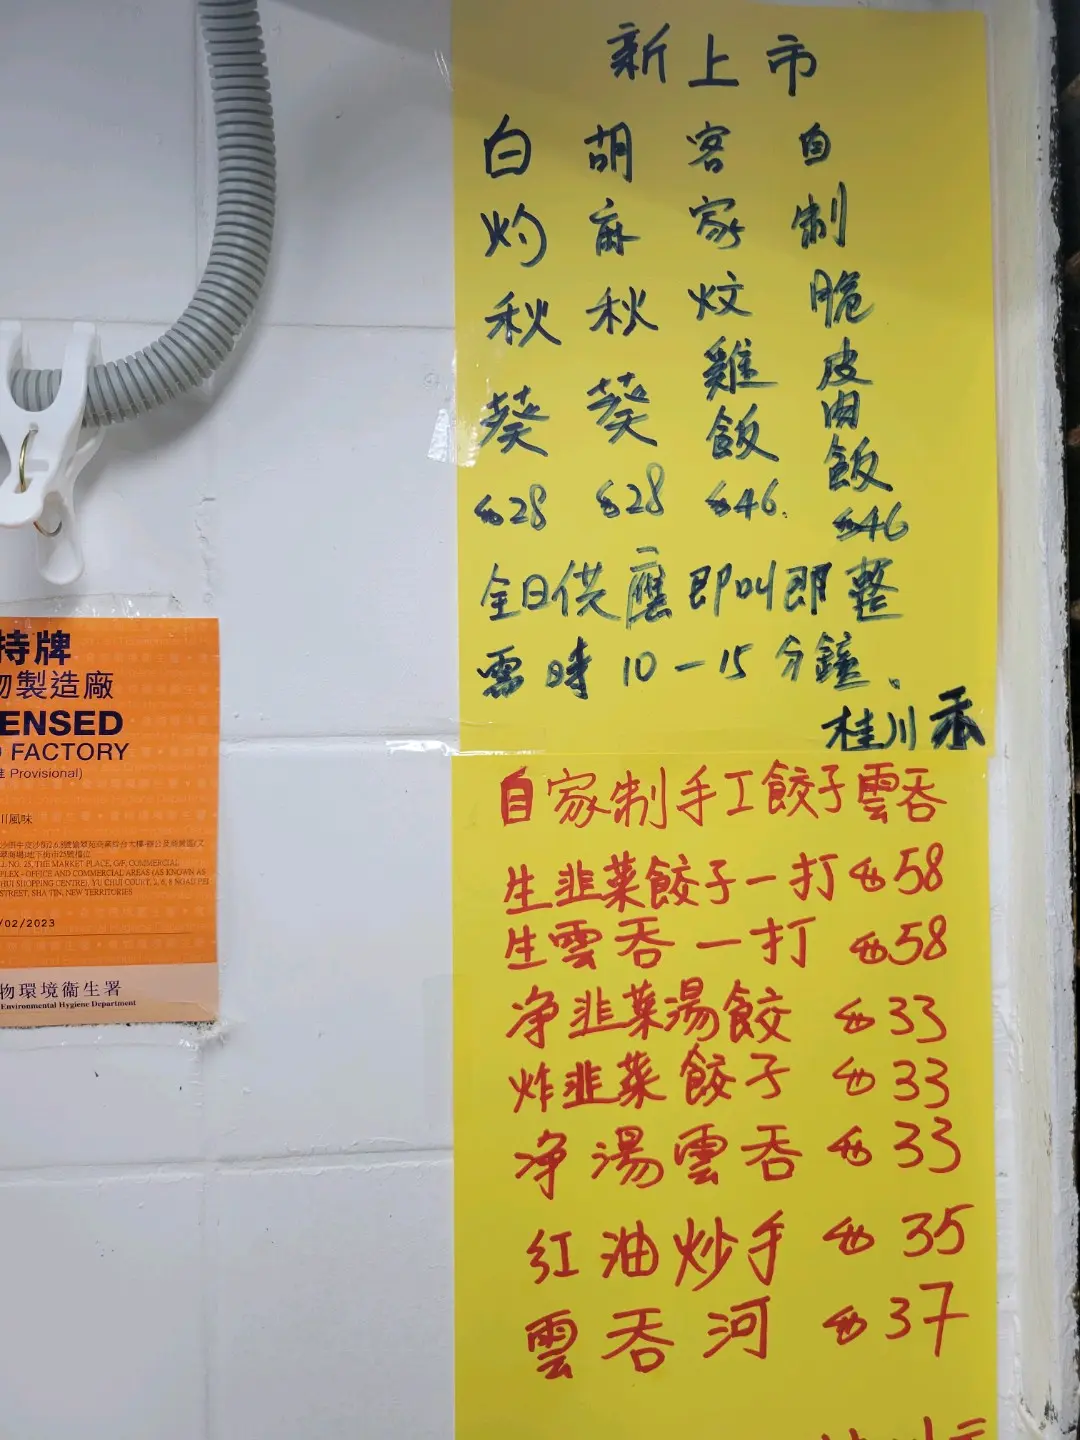 新上市
白灼秋葵 $28
胡麻秋葵 $28
客家炆雞飯 $46
自制脆皮肉飯 $46
全日供應即叫即整
需時10-15分鐘、
桂川
自家制手工餃子雲吞
生韭菜餃子一打 $58
生雲吞一打 $58
净韭菜湯餃 $33
炸韭菜餃子 $33
净湯雲吞 $33
红油炒手 $35
雲吞河 $37
持牌
物製造廠
ENSED
FACTORY
Provisional)
川風味
NO. 25, THE MARKET PLACE, G/F, COMMERCIAL
PLEX - OFFICE AND COMMERCIAL AREAS (AS KNOWN AS
HUI SHOPPING CENTRE), YU CHUI COURT, 2, 6, 8 NGAU PEI
STREET, SHA TIN, NEW TERRITORIES
/02/2023
物環境衞生署
Environmental Hygiene Department